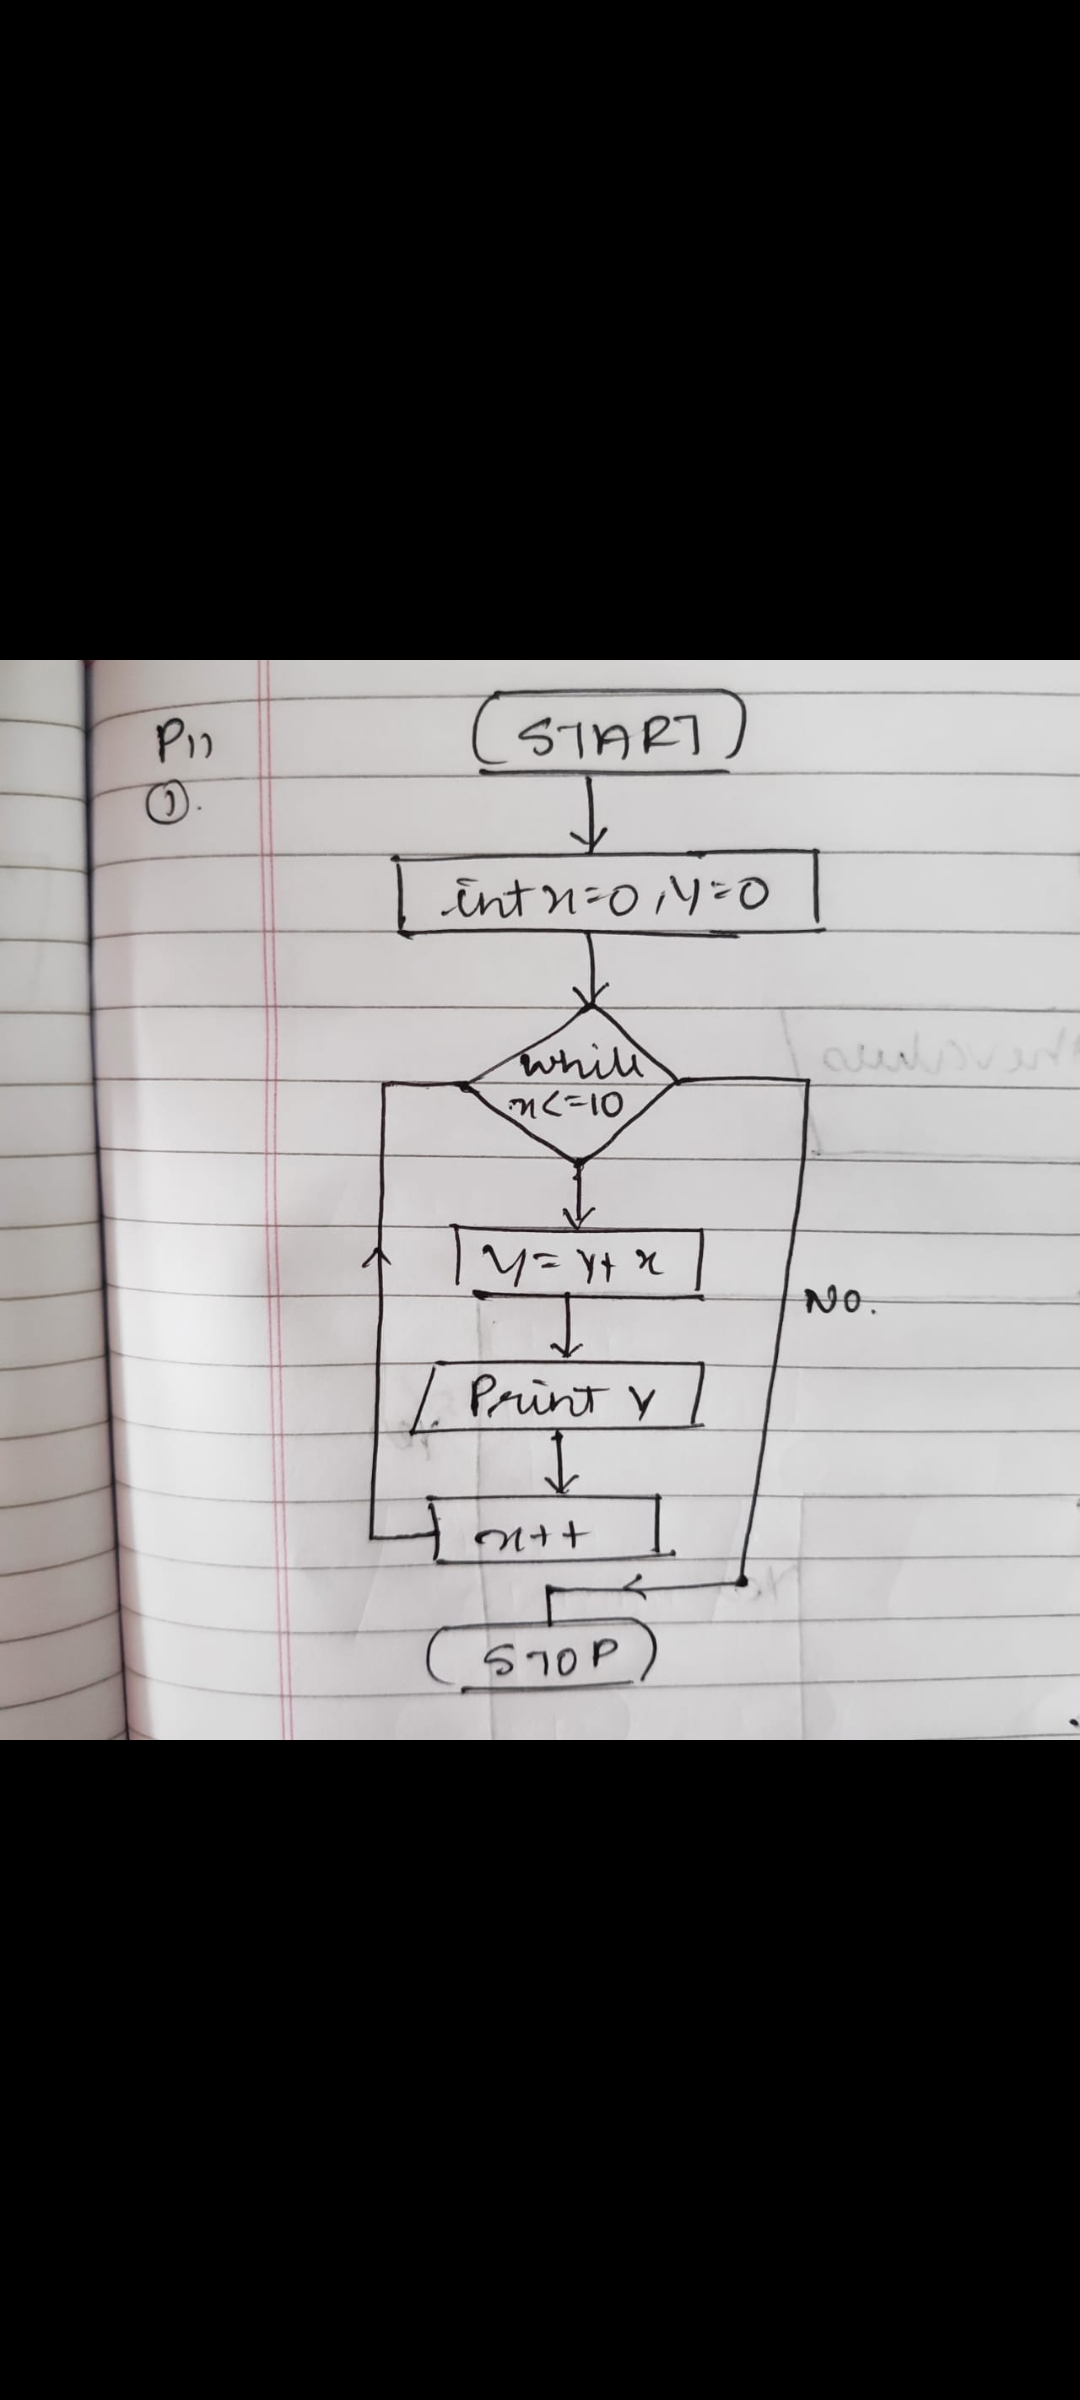 P11
START
①.
int x=0, y=0
while
x<=10
y = y + x
NO.
Print y
x++
STOP